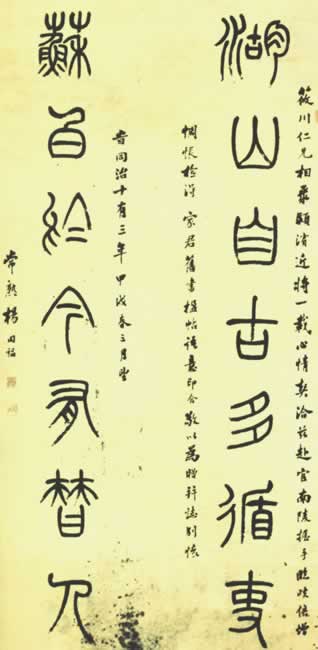 筱川仁兄相聚近將一載心情契洽茲赴官南陵握手臨岐倍增
湖山自古多循吏
惆悵檢得家君舊書楹帖語意印合敬以為贈并誌別懷
旹同治十有三年甲戌春三月望
蘇白於今有替人
常熟楊同福